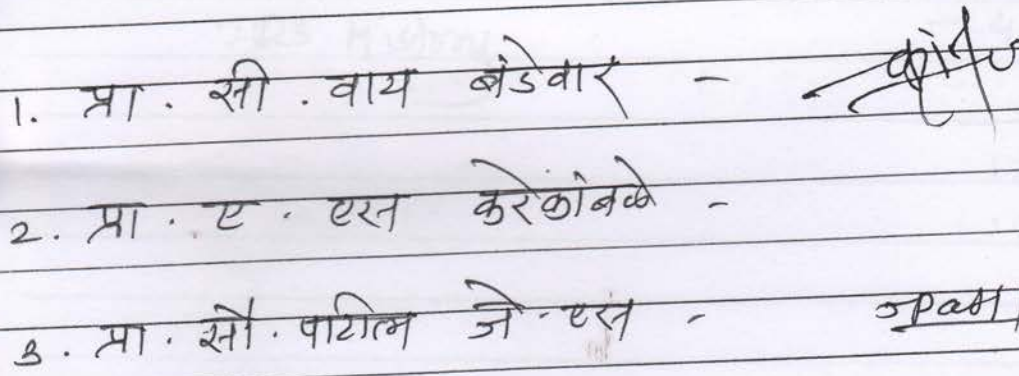 1. प्रा. सी. वाय बंडेवार -
2. प्रा. ए. एस करेकांबळे -
3. प्रा. सौ. पाटील जे. एस -